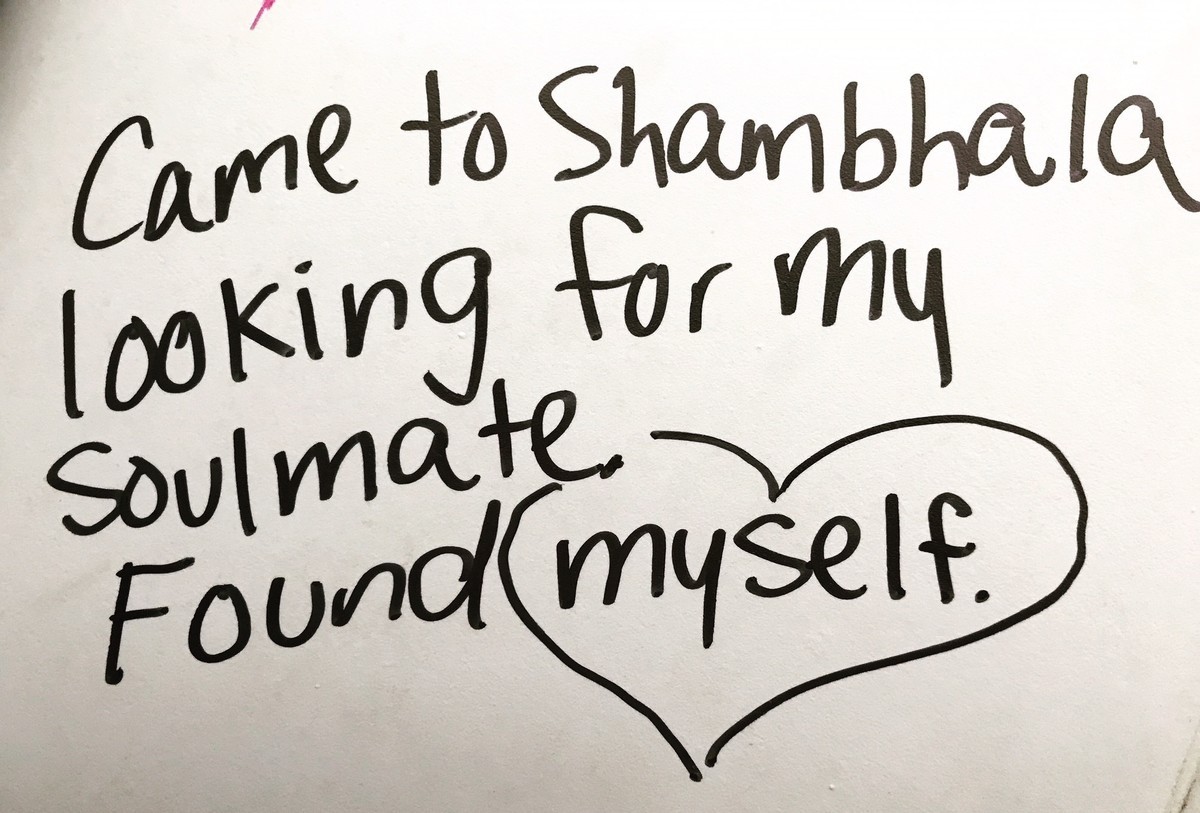 Came to Shambhala
looking for my
Soulmate.
Found myself.